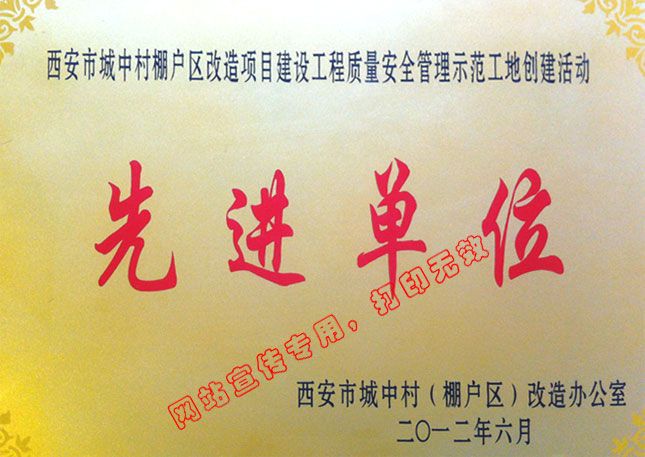 西安市城中村棚户区改造项目建设工程质量安全管理示范工地创建活动
先进单位
网站宣传专用，打印无效
西安市城中村（棚户区）改造办公室
二〇一二年六月